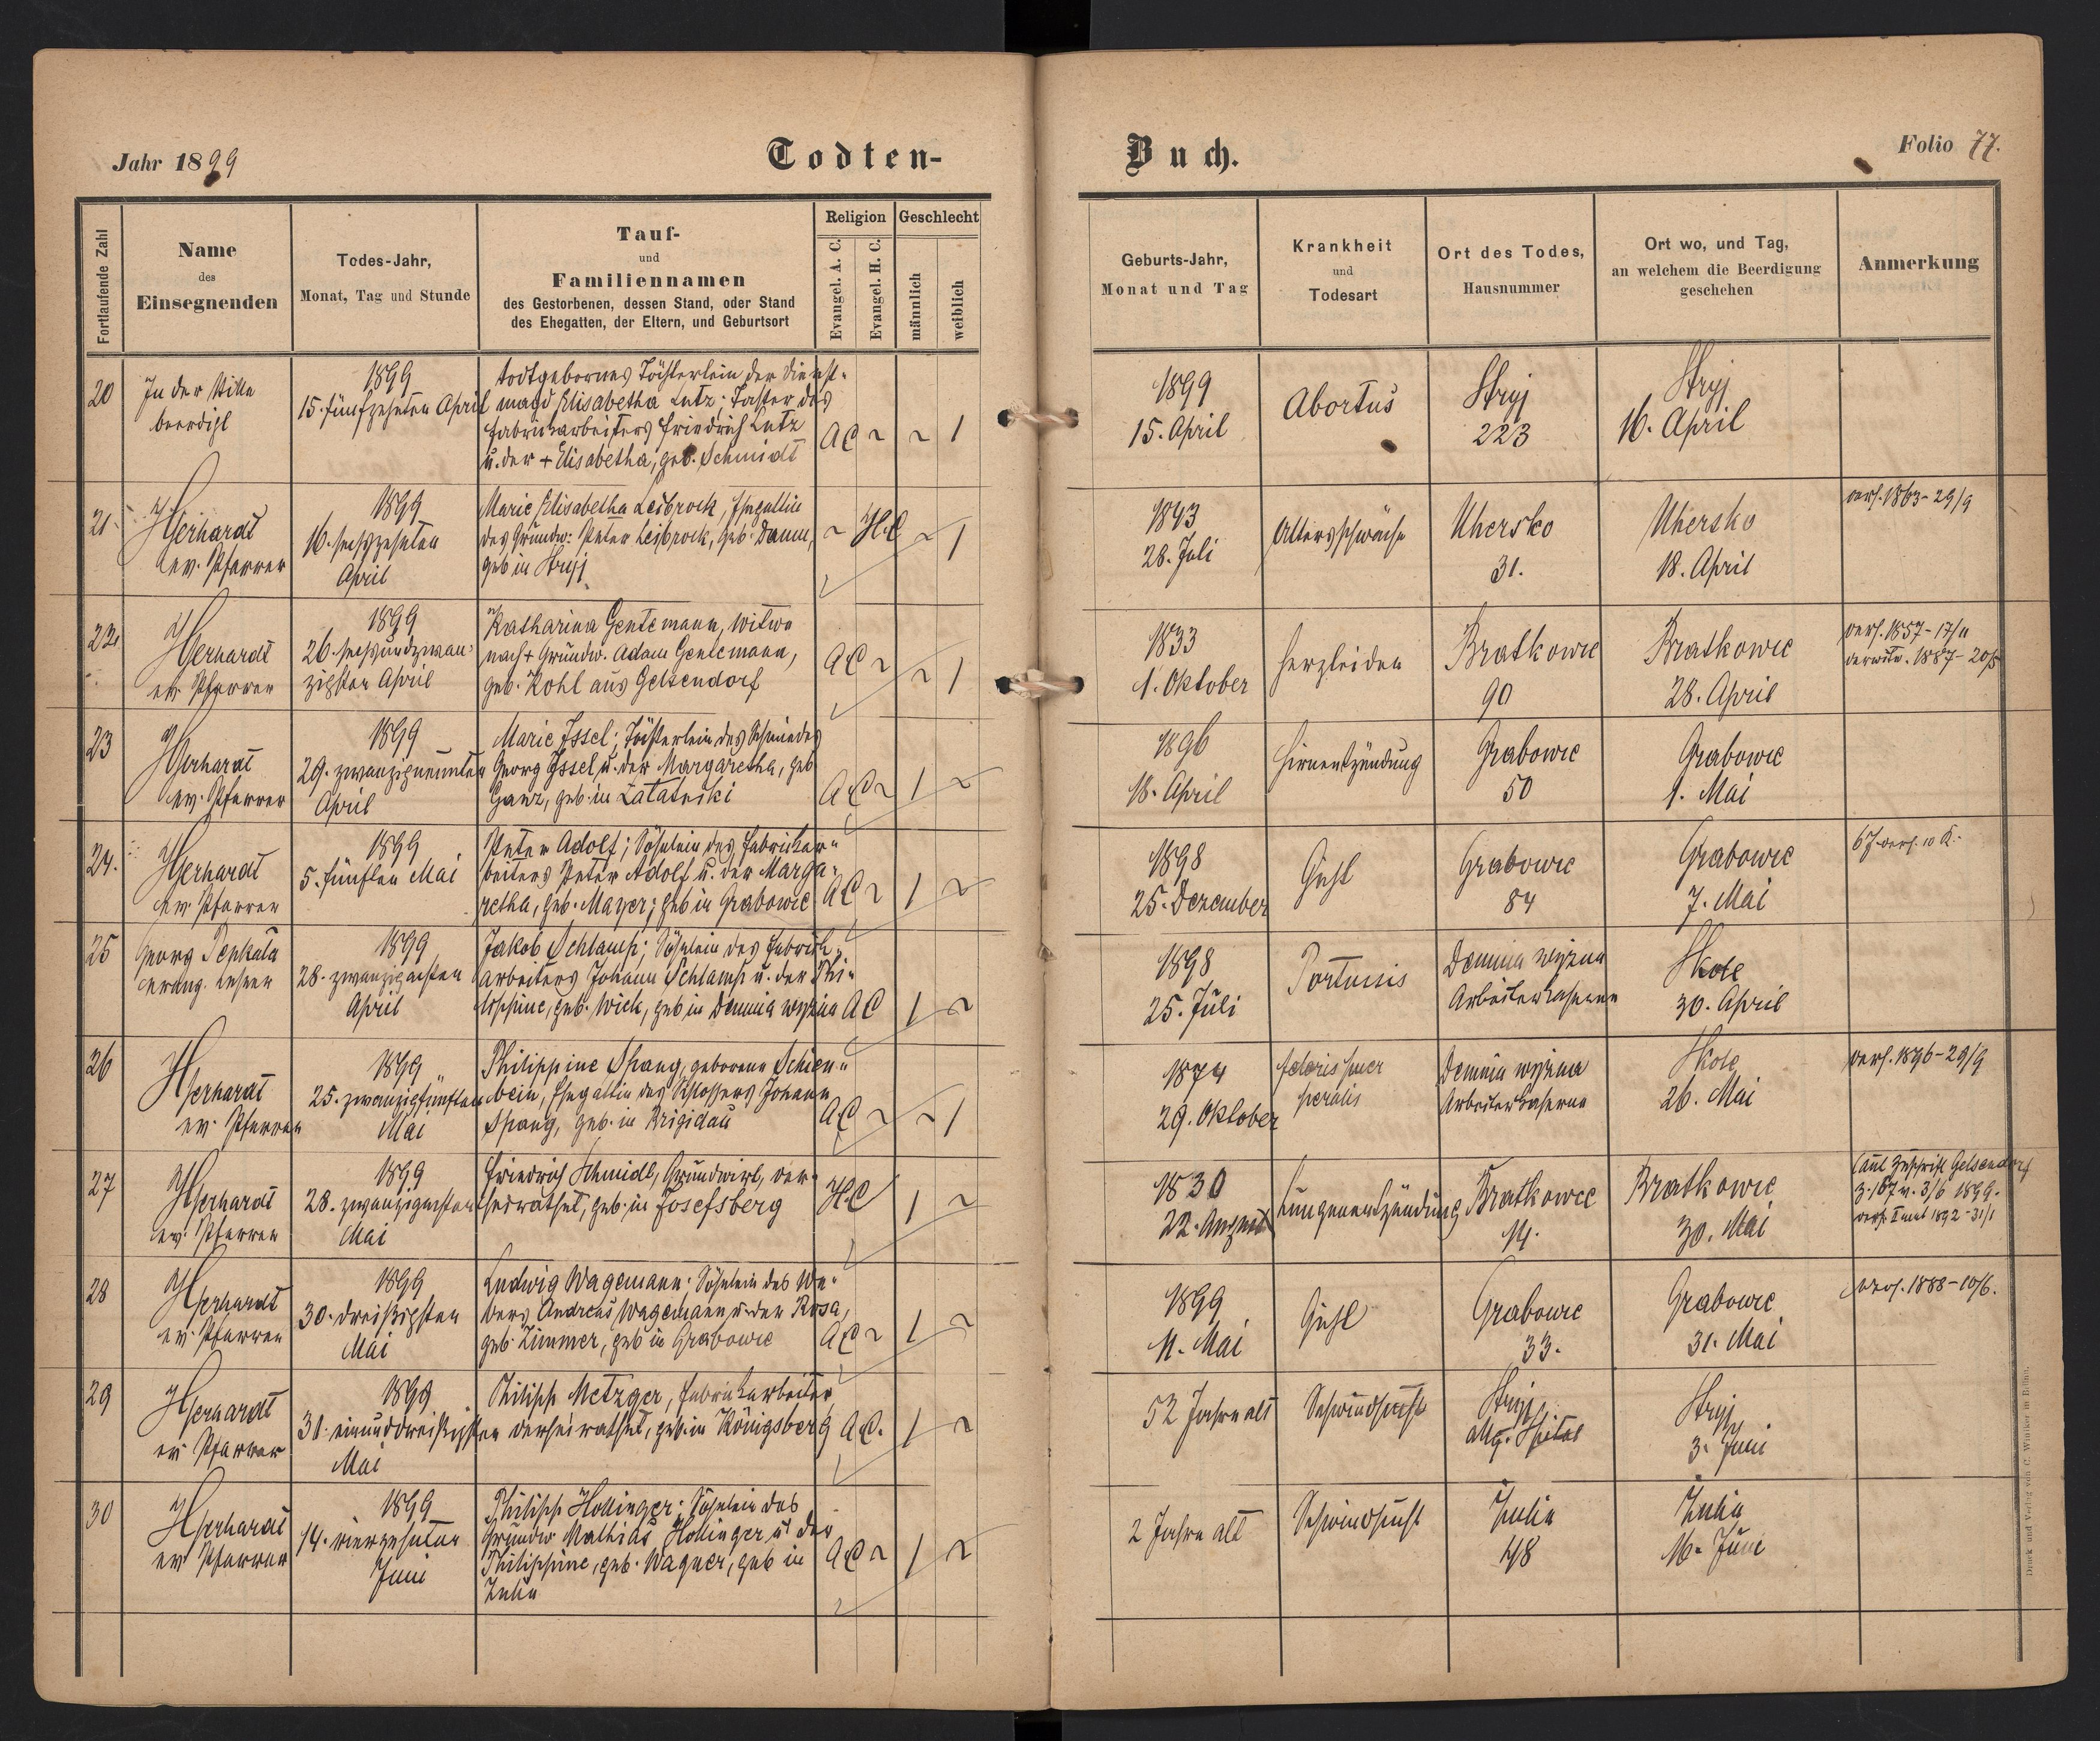 Jahr 1899
Todten-
Buch.
Folio 77.
Fortlaufende Zahl
Name
des
Einsegnenden
Todes-Jahr,
Monat, Tag und Stunde
Tauf-
und
Familiennamen
des Gestorbenen, dessen Stand, oder Stand
des Ehegatten, der Eltern, und Geburtsort
Religion
Evangel. A. C.
Evangel. H. C.
Geschlecht
männlich
weiblich
Geburts-Jahr,
Monat und Tag
Krankheit
und
Todesart
Ort des Todes,
Hausnummer
Ort wo, und Tag,
an welchem die Beerdigung
geschehen
Anmerkung
20
In der Stille
beerdigt
1899
15. fünfzehnten April
todtgebornes Töchterlein der Dienst-
magd Elisabetha Lutz; Tochter des
Fabriksarbeiters Friedrich Lutz
u. der + Elisabetha, geb. Schmidt
AC ~ ~ 1
1899
15. April
Abortus
Stryj
223
Stryj
16. April
21.
Gerhardt
ev. Pfarrer
1899
16. sechszehnten
April
Marie Elisabetha Leibrock, Ehegattin
des Grundw: Peter Leibrock, geb. Damm,
geb in Stryj
~ H.C ~ 1
1843
28. Juli
Altersschwäche
Uhersko
31.
Uhersko
18. April
verh. 1863-29/9
22.
Gerhardt
ev. Pfarrer
1899
26. sechsundzwan-
zigsten April
Katharina Gentemann, Witwe
nach + Grundw. Adam Gentemann,
geb. Kohl aus Gelsendorf
AC ~ ~ 1
1833
1. Oktober
Herzleiden
Bratkowce
90
Bratkowce
28. April
verh. 1857-17/11
verwitw. 1887-20/5
23
Gerhardt
ev. Pfarrer
1899
29. zwanzigneunten
April
Marie Issel; Töchterlein des Schmiedes
Georg Issel u. der Margaretha, geb
Ganz, geb. in Zatatniki
AC ~ 1 ~
1896
18. April
Hirnentzündung
Grabowce
50
Grabowce
1. Mai
24.
Gerhardt
ev. Pfarrer
1899
5. fünften Mai
Peter Adolf; Söhnlein des Fabrikar-
beiters Peter Adolf u. der Marga-
retha, geb. Mayer; geb in Grabowce
AC ~ 1 ~
1898
25. Dezember
Gicht
Grabowce
84
Grabowce
7. Mai
25
Georg
evang. Lehrer
1899
28. zwanzigachten
April
Jakob Schlamp; Söhnlein des Fabrik-
arbeiters Johann Schlamp u. der Phi-
lippine, geb. Wick, geb in Demnia wyżna
AC 1 ~
1898
25. Juli
Demnia wyżna
Arbeiterkaserne
Skole
30. April
26
Gerhardt
ev. Pfarrer
1899
25. zwanzigfünften
Mai
Philippine Spang, geborene Schien-
bein, Ehegattin des Schlossers Johann
Spang, geb. in Brigidau
AC ~ ~ 1
1874
29. Oktober
Demnia wyżna
Arbeiterkaserne
Skole
26. Mai
verh. 1896-29/9
27
Gerhardt
ev. Pfarrer
1899
28. zwanzigachten
Mai
Friedrich Schmidt, Grundwirt, ver-
heirathet, geb. in Josefsberg
HC 1 ~
1830
22. August
Lungenentzündung
Bratkowce
14.
Bratkowce
30. Mai
laut Zuschrift Gelsendorf
Z. 167 v. 3/6 1899.
1892-31/1
28
Gerhardt
ev. Pfarrer
1899
30. dreißigsten
Mai
Ludwig Wagemann; Söhnlein des We-
bers Andreas Wagemann u. der Rosa,
geb. Zimmer, geb in Grabowce
AC ~ 1 ~
1899
11. Mai
Gicht
Grabowce
33.
Grabowce
31. Mai
verh. 1888-10/6.
29
Gerhardt
ev. Pfarrer
1899
31. einunddreißigsten
Mai
Philipp Metzger, Fabrikarbeiter,
verheirathet, geb. in Königsberg
AC. 1 ~
52 Jahre alt
Schwindsucht
Stryj,
allg. Spital
Stryj
3. Juni
30
Gerhardt
ev. Pfarrer
1899
14. vierzehnten
Juni
Philipp Hollinger; Söhnlein des
Grundw. Mathias Hollinger u. der
Philippine, geb. Wagner, geb in
Zulin
AC ~ 1 ~
2 Jahre alt
Schwindsucht
Zulin
48
Zulin
16. Juni
Druck und Verlag von C. Winiker in Brünn.